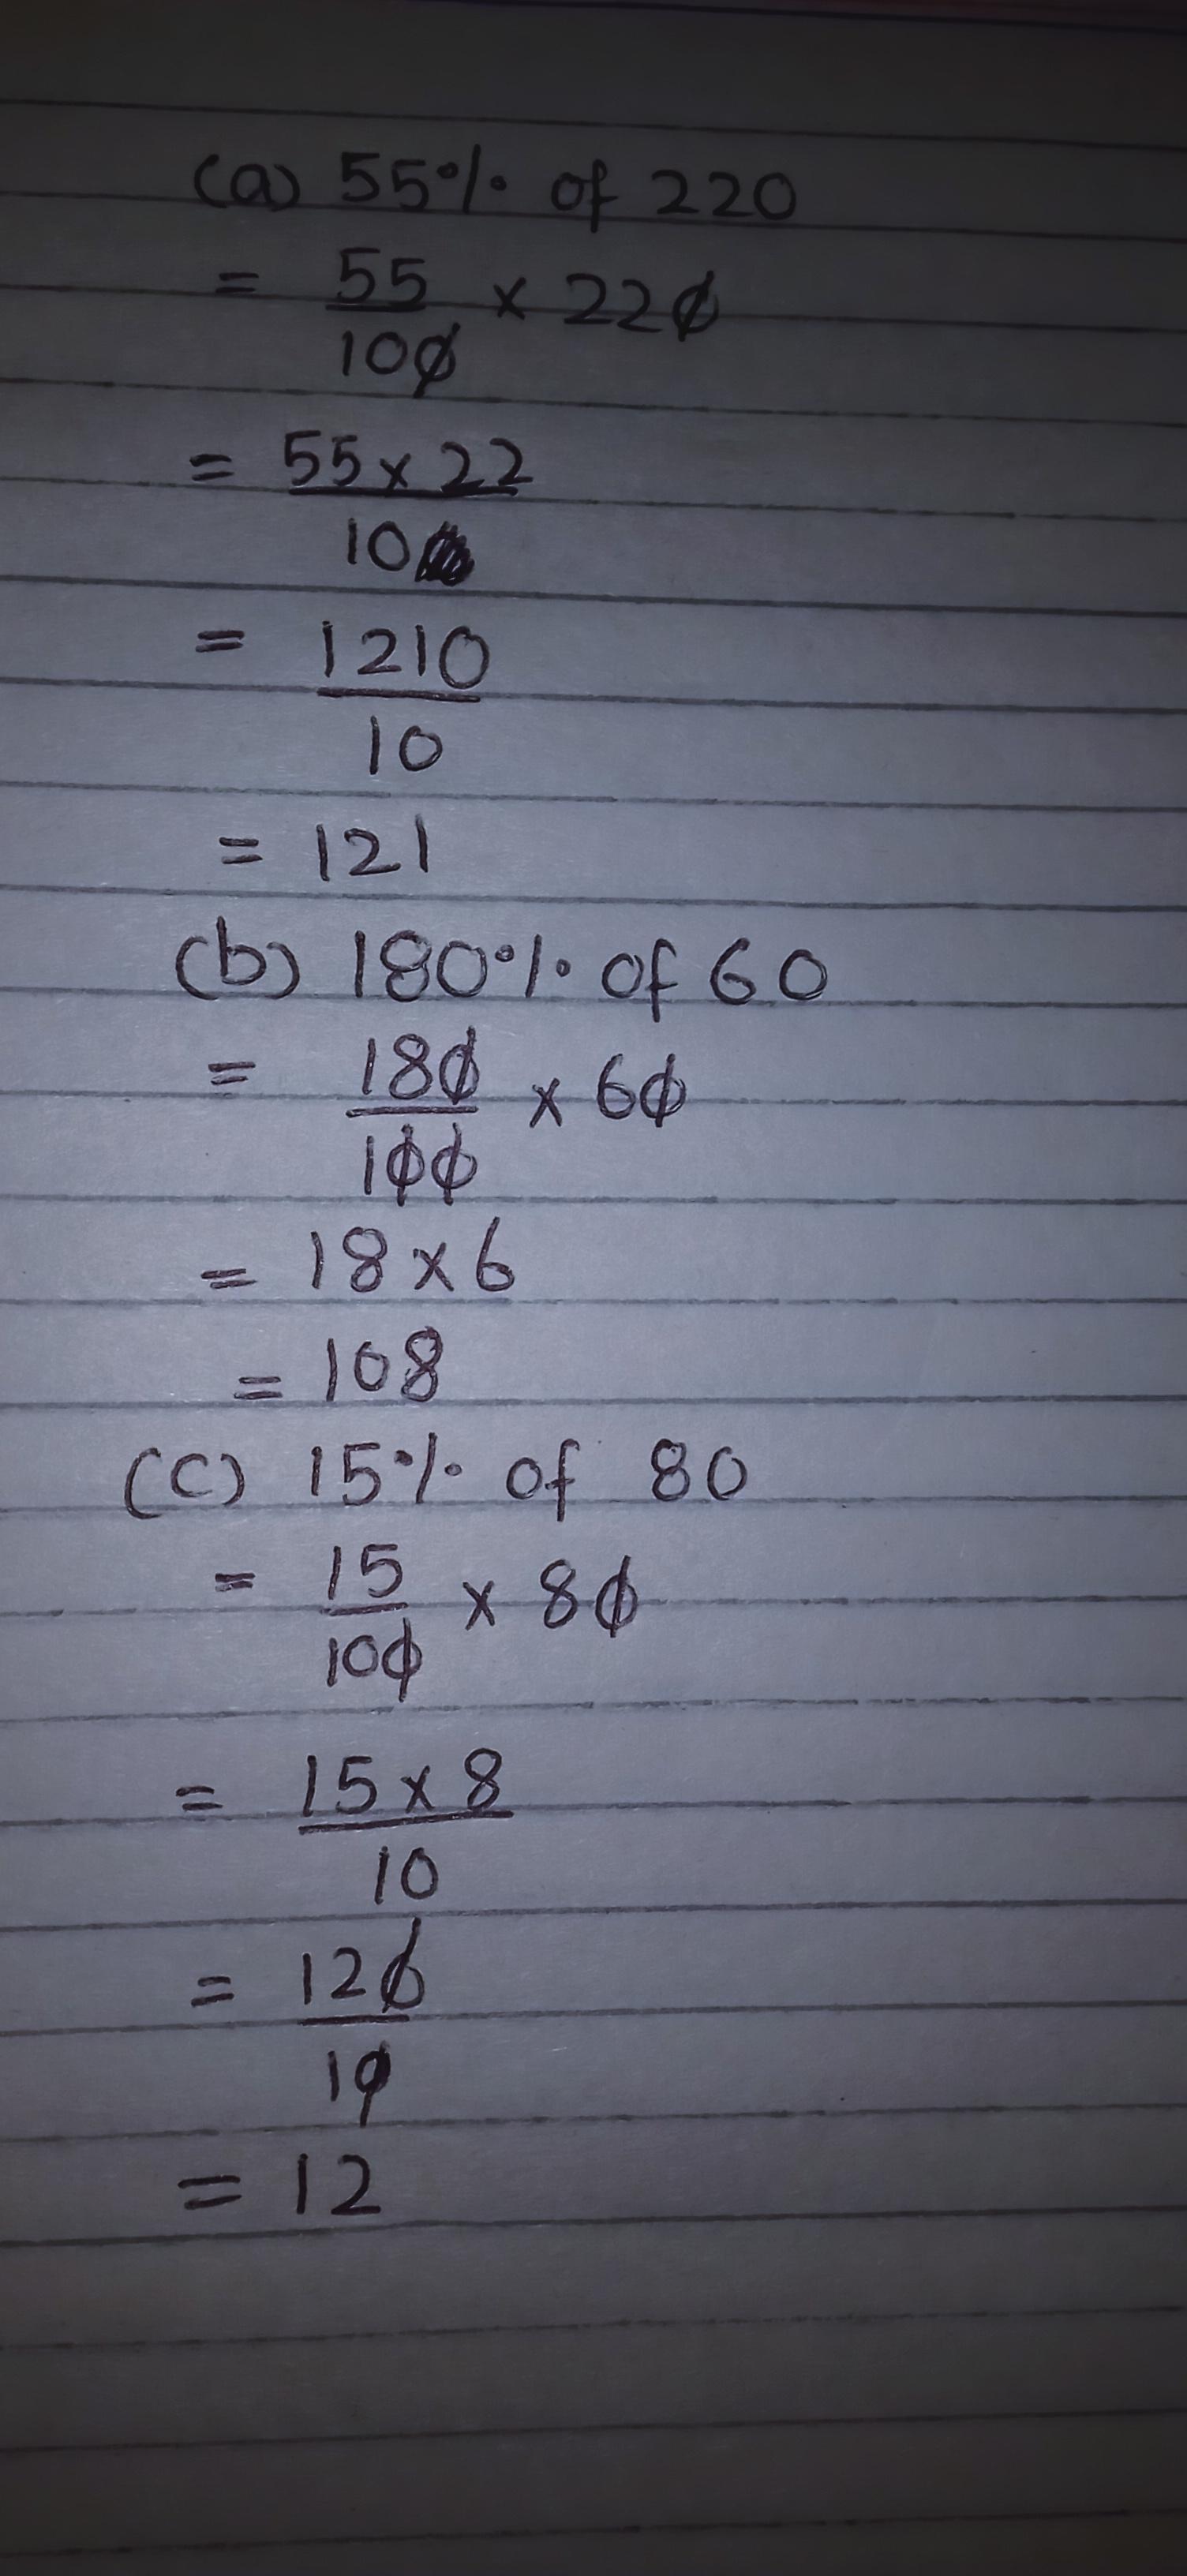 (a) 55% of 220
= 55/100 × 220
= 55×22/10
= 1210/10
= 121
(b) 180% of 60
= 180/100 × 60
= 18×6
= 108
(c) 15% of 80
= 15/100 × 80
= 15×8/10
= 120/10
= 12